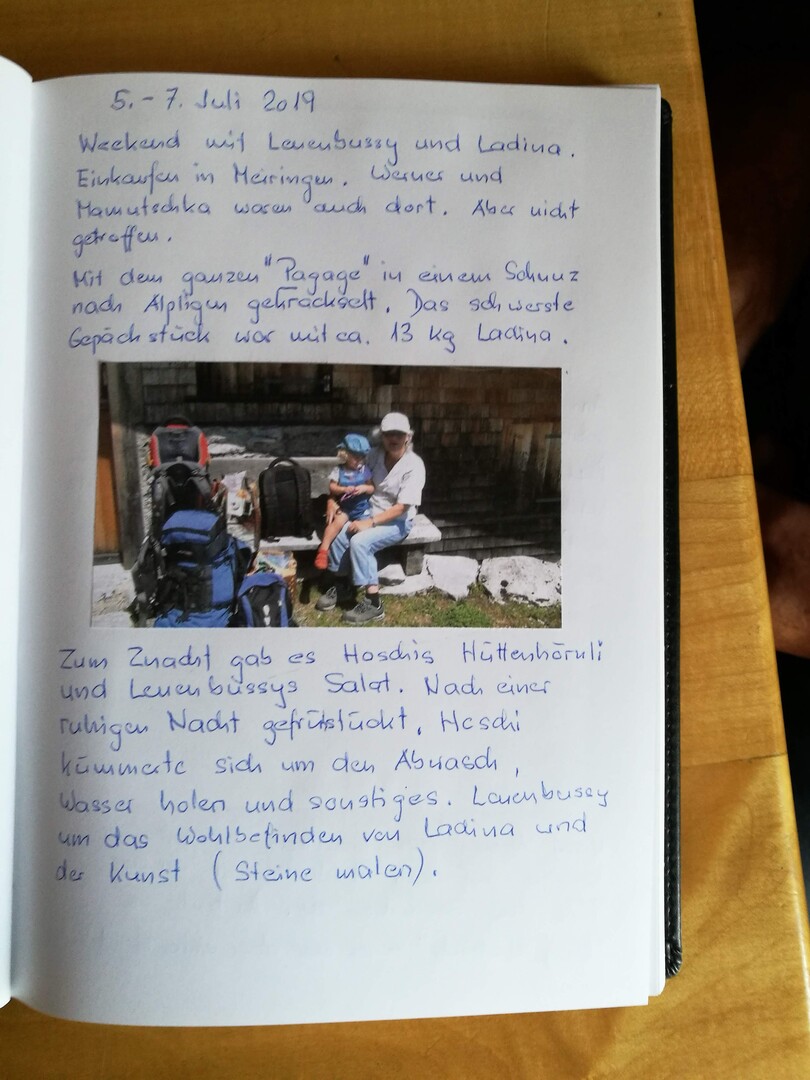 5.-7. Juli 2019
Weekend mit Leuenbussy und Ladina.
Einkaufen in Meiringen. Werner und
Mamutschka waren auch dort. Aber nicht
getroffen.
Mit dem ganzen "Pagage" in einem Schnuz
nach Älpligen gekräckselt. Das schwerste
Gepäckstück war mit ca. 13 kg Ladina.
Zum Znacht gab es Hoschis Hüttenhörnli
und Leuenbussys Salat. Nach einer
ruhigen Nacht gefrühstückt. Hoschi
kümmerte sich um den Abwasch,
Wasser holen und sonstiges. Leuenbussy
um das Wohlbefinden von Ladina und
der Kunst (Steine malen).